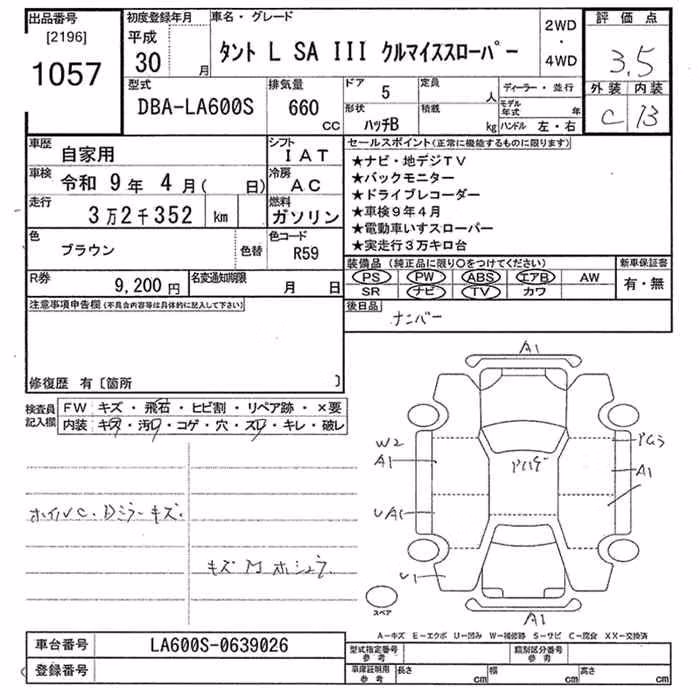 出品番号 初度登録年月 車名・グレード 2WD・4WD 評価点
[2196] 1057 平成 30 月 タント L SA III クルマイススローパー 3.5
型式 排気量 ドア 5 定員 人 ディーラー・並行 外装 内装
DBA-LA600S 660 CC 形状 ハッチB 積載 kg モデル年式 年 ハンドル 左・右 C B
車歴 自家用 シフト IAT セールスポイント(正常に機能するものに限ります)
車検 令和 9 年 4 月( 日) 冷房 AC
走行 3万2千352 km 燃料 ガソリン
★ナビ・地デジTV
★バックモニター
★ドライブレコーダー
★車検9年4月
★電動車いすスローパー
★実走行3万キロ台
色 ブラウン 色替 色コード R59
装備品(純正品に限り○をつけてください) 新車保証書
PS PW ABS エアB AW 有・無
SR ナビ TV カワ
R券 9,200 円 名変通知期限 月 日
注意事項申告欄(不具合内容等は具体的に記入して下さい)
後日品
ナンバー
修復歴 有〔箇所 〕
検査員記入欄 FW キズ・飛石・ヒビ割・リペア跡・×要
内装 キズ・汚レ・コゲ・穴・スレ・キレ・破レ
A1
W2
A1
A1
UA1
U1
A1
ホイルC.Dミラーキズ.
スペア
A-キズ E-エクボ U-凹み W-補修跡 S-サビ C-腐食 XX-交換済
車台番号 LA600S-0639026
登録番号
型式指定番号 参考 類別区分番号 参考
車庫証明用 参考 長さ cm 幅 cm 高さ cm